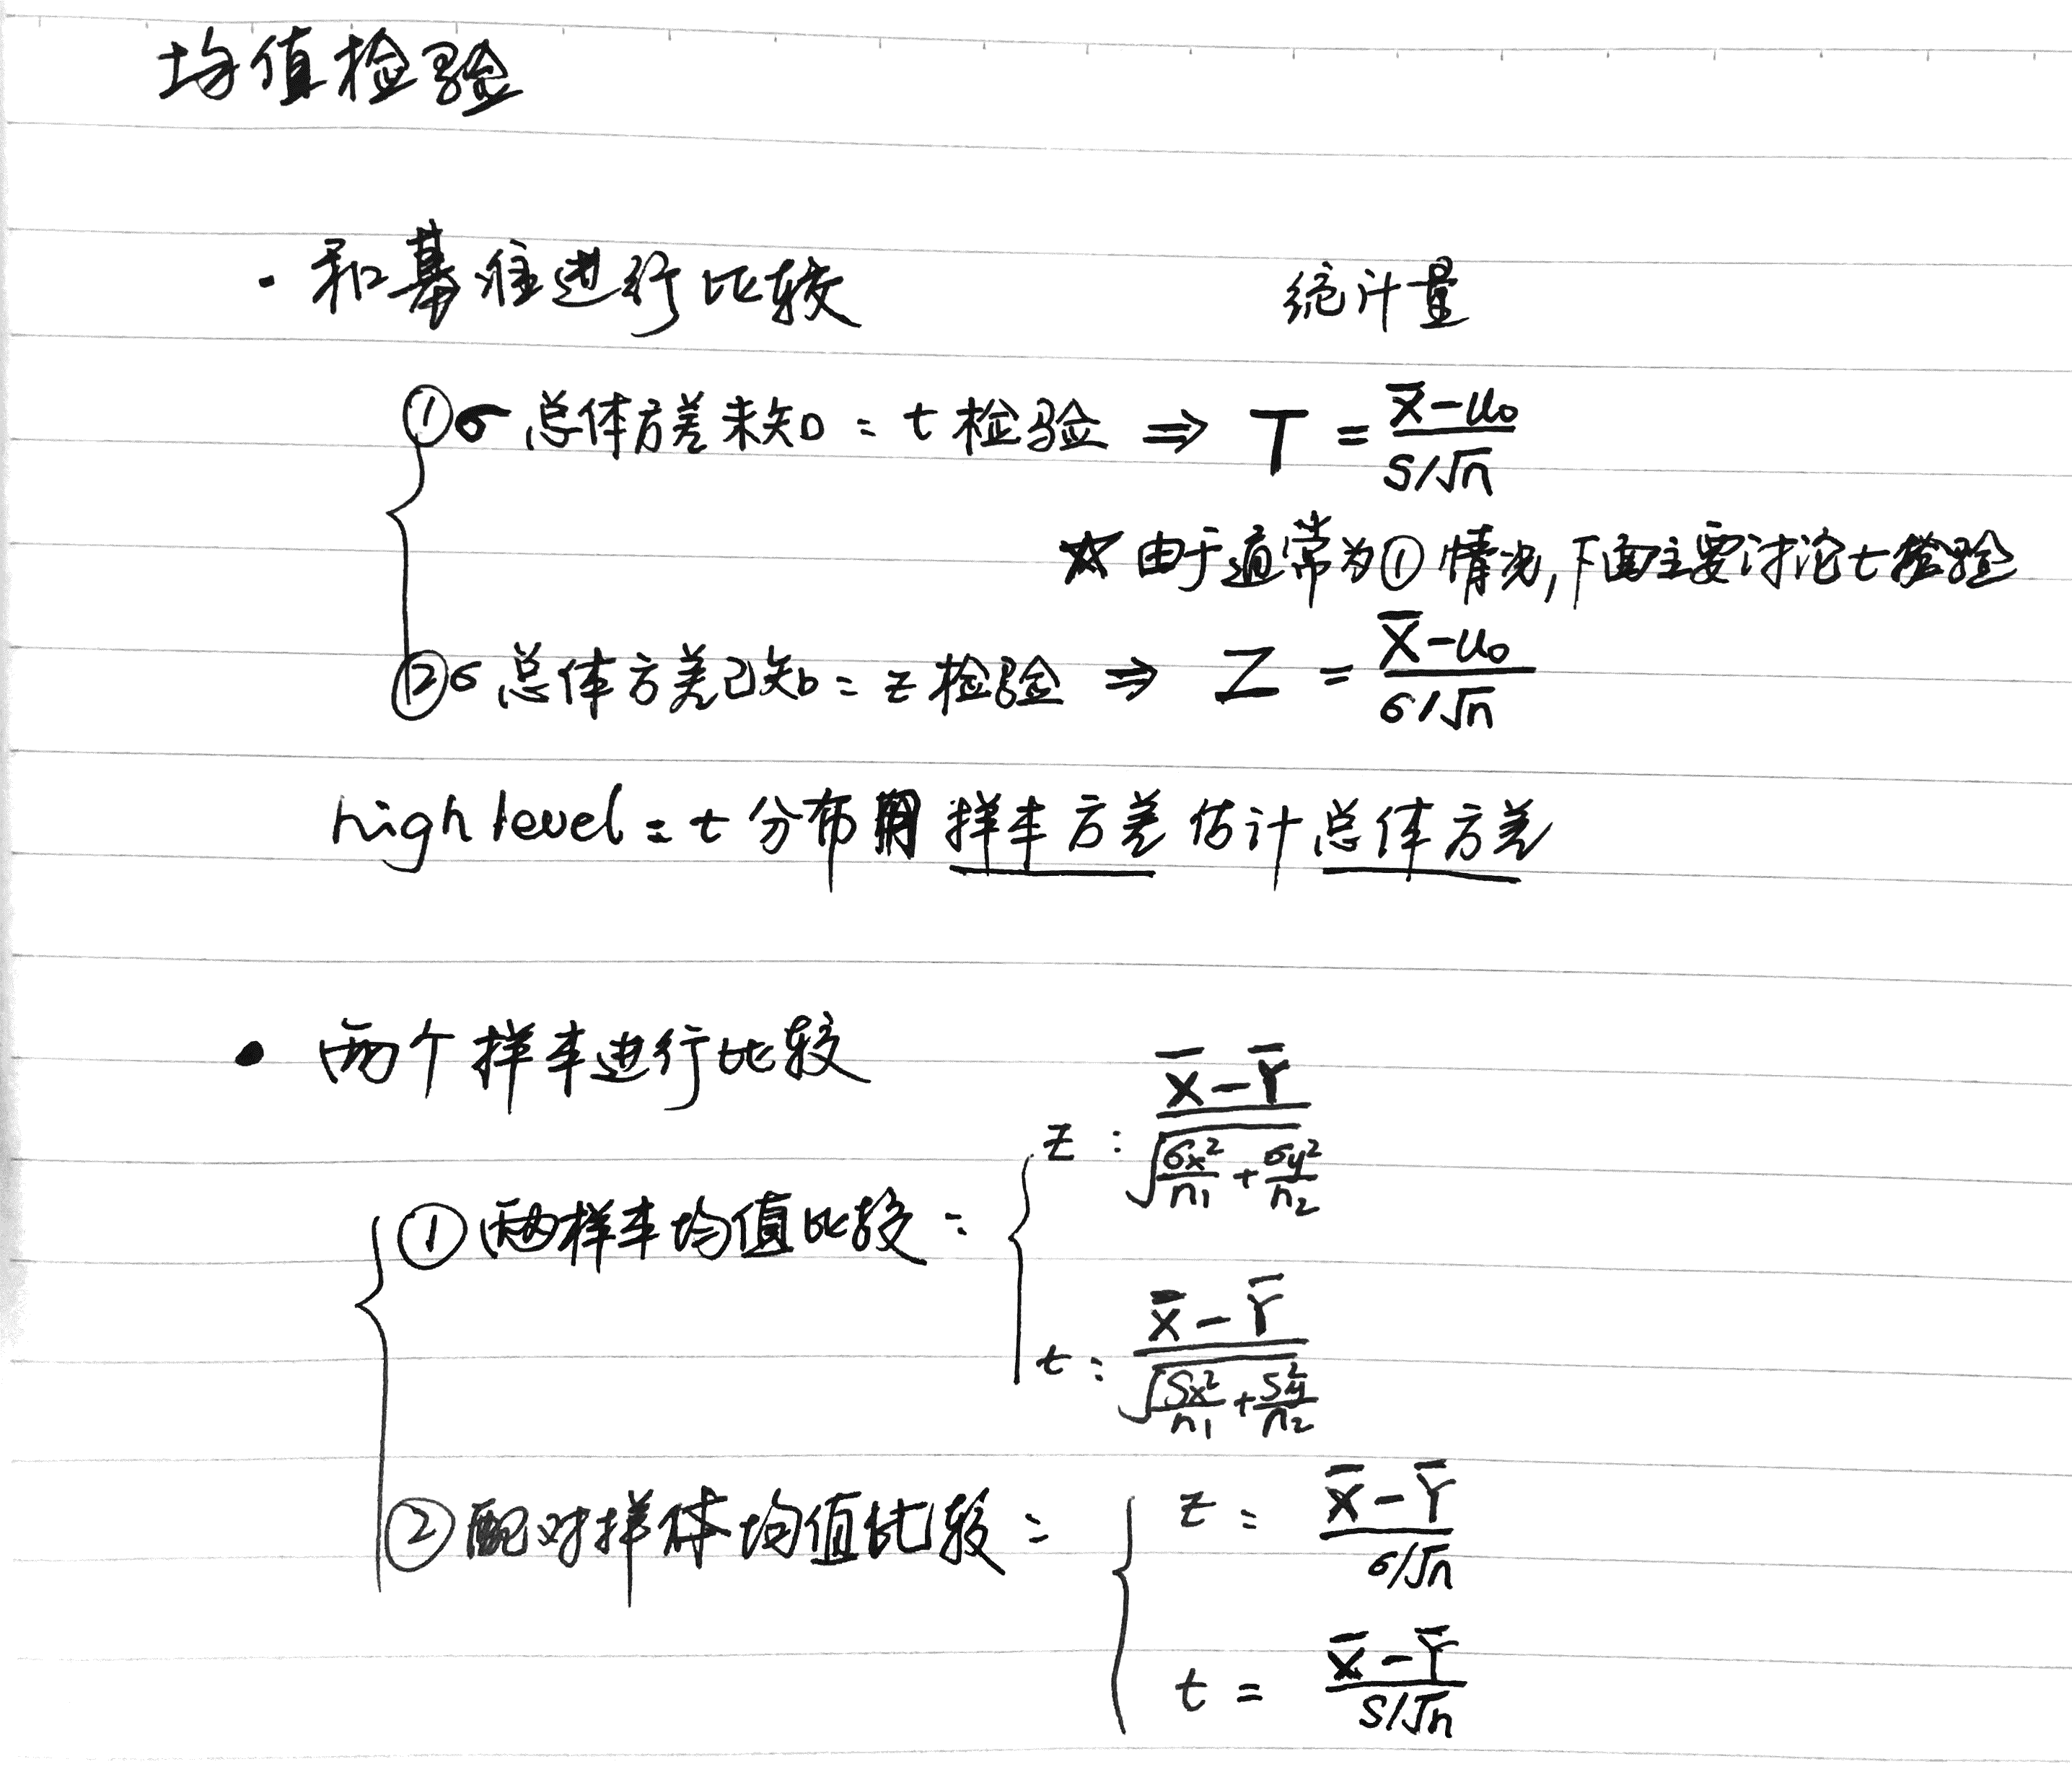 均值检验
· 和基准进行比较 统计量
①σ 总体方差未知: t 检验 ⇒ T = (X̄-u₀)/(S/√n)
☆ 由于通常为① 情况,下面主要讨论t检验
②σ 总体方差已知: z 检验 ⇒ Z = (X̄-u₀)/(σ/√n)
high level: t 分布用 样本方差 估计 总体方差
• 两个样本进行比较
①两样本均值比较:
z : (X̄-Ȳ)/√(σx²/n₁+σy²/n₂)
t : (X̄-Ȳ)/√(Sx²/n₁+Sy²/n₂)
②配对样体均值比较:
z : (X̄-Ȳ)/(σ/√n)
t = (X̄-Ȳ)/(S/√n)